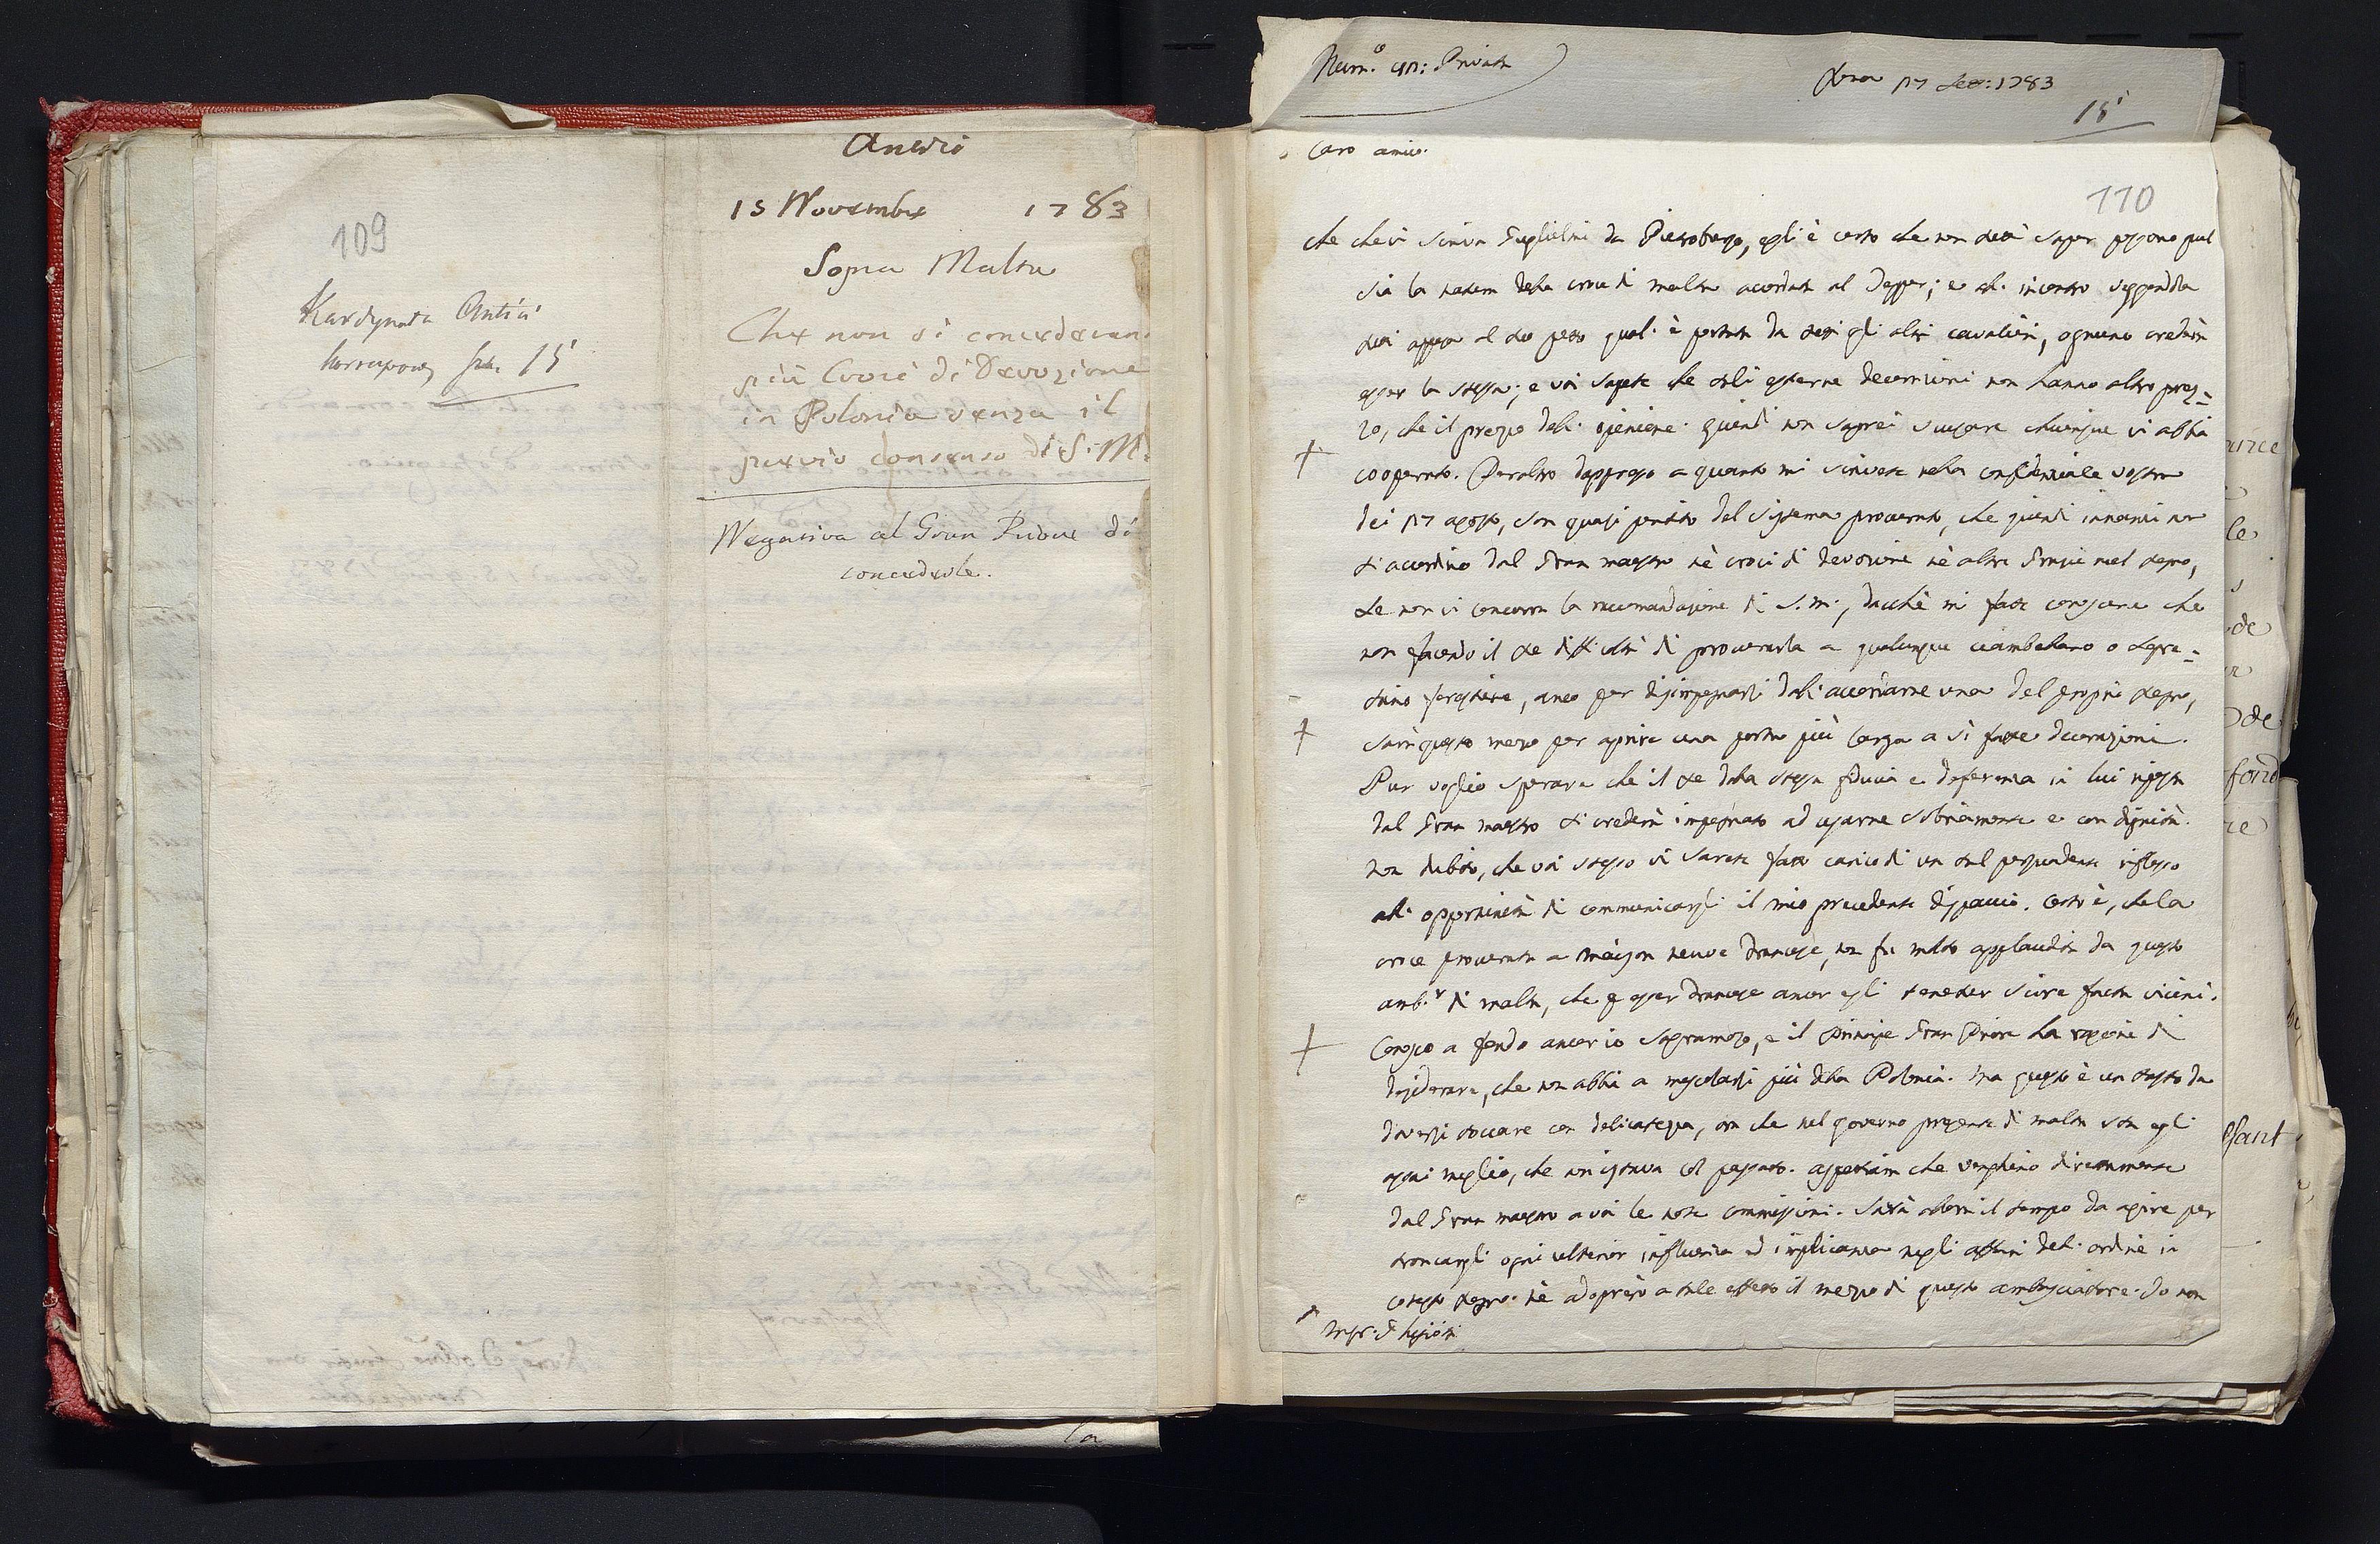 109
Kardynała Antici
15
Antici
15 Novembre 1783
Sopra Malta
Che non si concederanno
più Croci di Devozione
in Polonia senza il
previo consenso di S. M.
Negativa al Gran Priore di
concederle.
Num.º Privata
Roma 17 1783
15
Caro amico.
110
Che che vi scriva da Pietroburgo, egli è certo che non
sia la della croce di malta accordata al; e all' incontro
al suo petto qual' è portata da tutti gli altri cavalieri, ognuno crederà
esser la stessa; e voi sapete che tali esterne decorazioni non hanno altro prez=
zo, che il prezzo dell' opinione. quindi non saprei scusare chiunque vi abbia
cooperato. Peraltro dappresso a quanto mi scrivete nella confidenziale vostra
dei 17 agosto, son quasi pentito del sistema procurato, che quindi innanzi non
si accordino dal Gran maestro nè croci di devozione nè altre Grazie nel regno,
se non vi concorra la raccomandazione di S. M., dacchè mi fate conoscere che
non facendo il Re difficoltà di procurarla a qualunque ciambellano o
forestiere, anco per disimpegnarsi dall' accordarne una del proprio regno,
sarà questo mezzo per aprire una porta più larga a sì fatte decorazioni.
Pur voglio sperare che il Re dalla stessa fiducia e deferenza in lui riposta
dal Gran maestro si crederà impegnato ad usarne sobriamente e con dignità.
Non dubito, che voi stesso vi sarete fatto carico di un tal persuadente riflesso
all' opportunità di communicargli il mio precedente dispaccio. Certo è, che la
croce procurata a maison neuve francese, non fu molto applaudita da questo
amb.r di malta, che p esser francese ancor egli
Conosco a fondo ancor io Sagramoso, e il Principe Gran Priore ha ragione di
desiderare, che non abbia a mescolarsi più della Polonia. Ma questo è un tasto da
doversi toccare con delicatezza, or che nel governo presente di malta sta egli
assai meglio, che non istava col passato. aspettiam che venghino direttamente
dal Gran maestro a voi le note commissioni. Sarà allora il tempo da agire per
troncargli ogni ulterior influenza ed implicanza negli affari dell' ordine in
cotesto regno. nè adoprerò a tale effetto il mezzo di questo ambasciatore. Io non